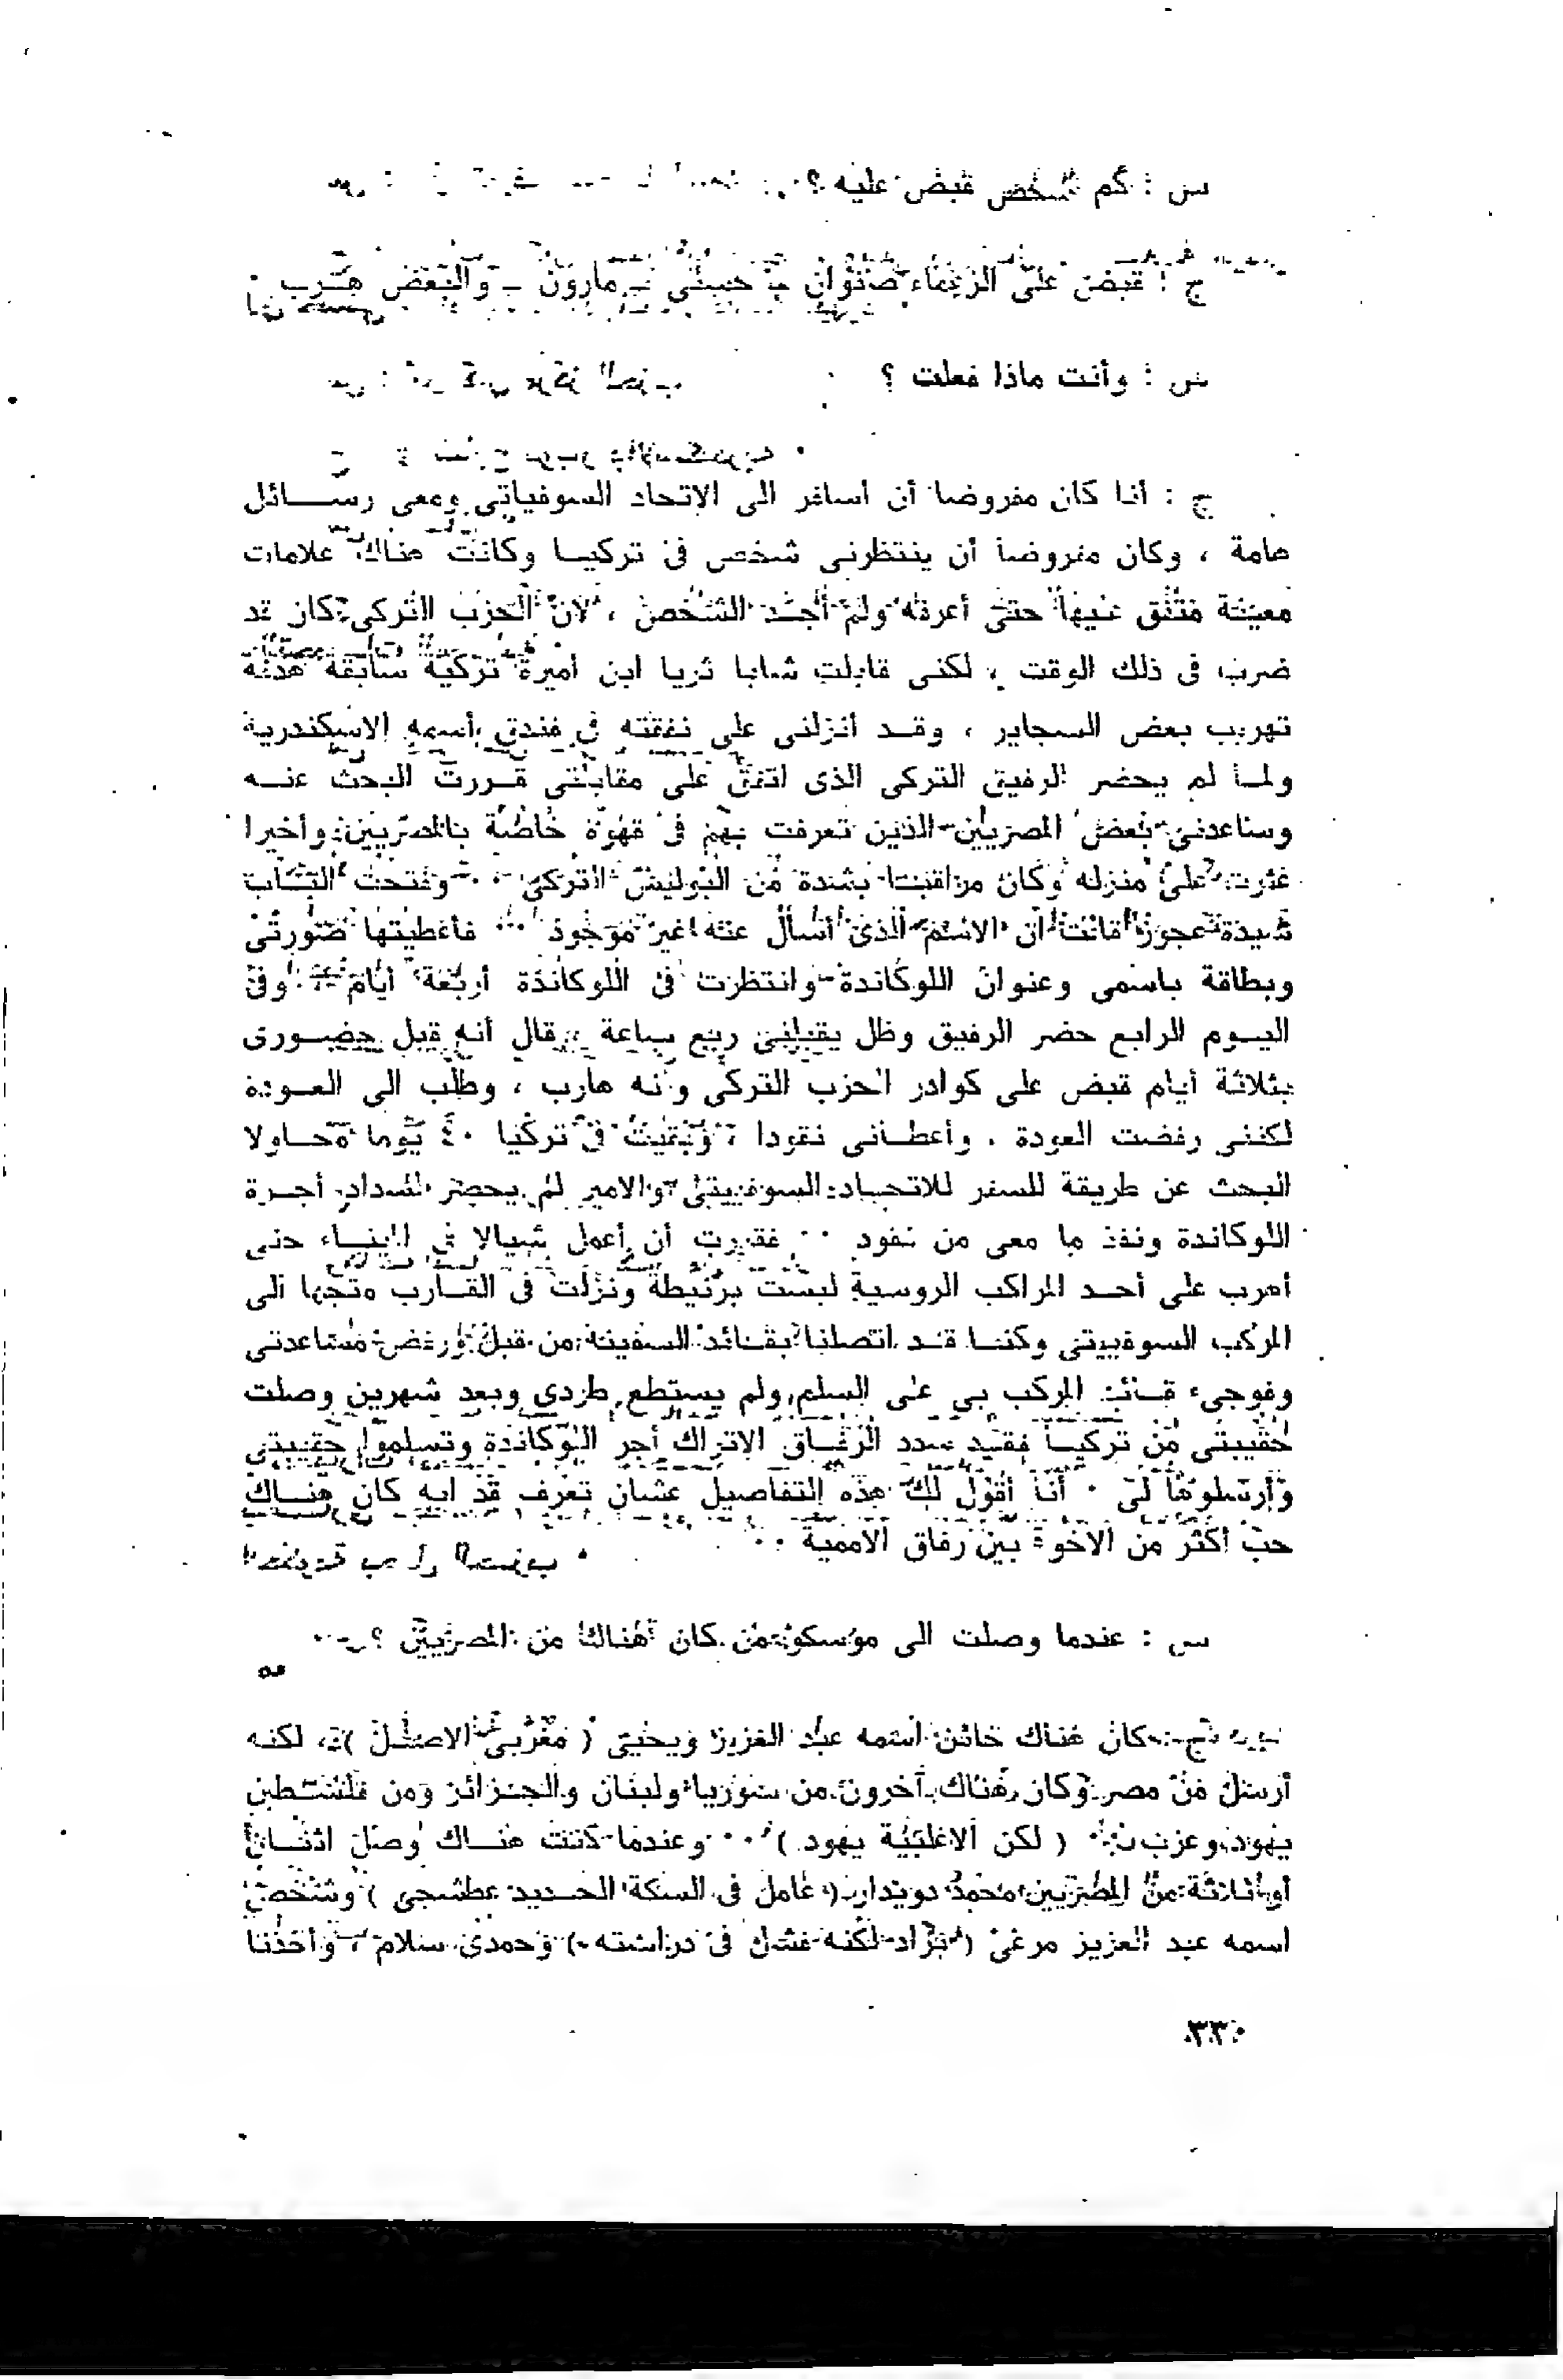 س : كم شخص قبض عليه ؟
ج : قبض على الزعماء صفوان - حسنى - مارون - والبعض هرب .
س : وأنت ماذا فعلت ؟
ج : أنا كان مفروضا أن أسافر الى الاتحاد السوفياتى ومعى رســـائل
هامة ، وكان مفروضا أن ينتظرنى شخص فى تركيـا وكانت هناك علامات
معينة متفق عليها حتى أعرفه ولم أجـد الشخص ، لأن الحزب التركى كان قد
ضرب فى ذلك الوقت ، لكنى قابلت شابا ثريا ابن أميرة تركية سابقة
تهريب بعض السجاير ، وقـد أنزلنى على نفقته فى فندق أسمه الاسكندرية
ولمـا لم يحضر الرفيق التركى الذى اتفق على مقابلتى قـررت البحث عنـه
وساعدنى بعض المصريين الذين تعرفت بهم فى قهوة خاصة بالمصريين وأخيرا
عثرت على منزله وكان مراقبا بشدة من البوليس التركى . . وفتحت البـاب
سيدة عجوز قالت أن الاسم الذى أسأل عنه غير موجود . . فأعطيتها صورتى
وبطاقة باسمى وعنوان اللوكاندة وانتظرت فى اللوكاندة أربعة أيام . . وفى
اليـوم الرابع حضر الرفيق وظل يقبلنى ربع ساعة . . قال أنه قبل حضـورى
بثلاثة أيام قبض على كوادر الحزب التركى وأنه هارب ، وطلب الى العـودة
لكننى رفضت العودة . وأعطـانى نقودا ، وبقيت فى تركيا ٤٠ يوما محـاولا
البحث عن طريقة للسفر للاتحـاد السوفييتى والامير لم يحضر لسداد أجـرة
اللوكاندة ونفذ ما معى من نقود . . فقررت أن أعمل شيالا فى المينـاء حتى
أهرب على أحـد المراكب الروسية لبست برنيطة ونزلت فى القـارب متجها الى
المركب السوفييتى وكنـا قـد اتصلنا بقـائد السفينة من قبل ورفض مساعدتى
وفوجىء قـائد المركب بى على السلم ولم يستطع طردى وبعد شهرين وصلت
حقيبتى من تركيـا فقـد سدد الرفـاق الاتراك أجر اللوكاندة وتسلموا حقيبتى
وأرسلوها لى . أنا أقول لك هذه التفاصيل عشان تعرف قد ايه كان هنـاك
حب أكثر من الاخوة بين رفاق الاممية . .
س : عندما وصلت الى موسكو من كان هناك من المصريين ؟
ج : كان هناك خائن أسمه عبد العزيز ويحيى ( مغربى الاصـل ) ، لكنه
أرسل من مصر وكان هناك آخرون من سوريا ولبنان والجـزائر ومن فلسـطين
يهود وعرب ( لكن الاغلبية يهود ) . . وعندما كنت هنـاك وصل اثنـان
أو ثلاثة من المصريين محمد دويدار ( عامل فى السكة الحـديد عطشجى ) وشخص
اسمه عبد العزيز مرعى ( براد لكنه فشل فى دراسته ) وحمدى سلام ، وأخذنا
٣٣٠